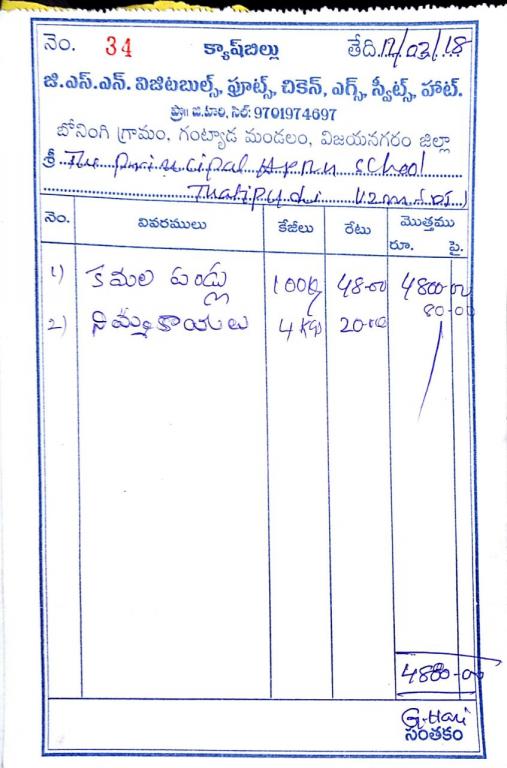 నెం. 34 క్యాష్‌బిల్లు తేది 12/03/18
జి.ఎస్.ఎన్. విజిటబుల్స్, ఫ్రూట్స్, చికెన్, ఎగ్స్, స్వీట్స్, హాట్.
ప్రొ॥ జి.హరి, సెల్: 9701974697
బోనింగి గ్రామం, గంట్యాడ మండలం, విజయనగరం జిల్లా
శ్రీ The principal school
Thatipudi
నెం. వివరములు కేజీలు రేటు మొత్తము
రూ. పై.
1) కమల పండ్లు 100Kg 48-00 4800-00
2) నిమ్మకాయలు 4 Kgs 20-00 80-00
4880-00
G.Hari
సంతకం